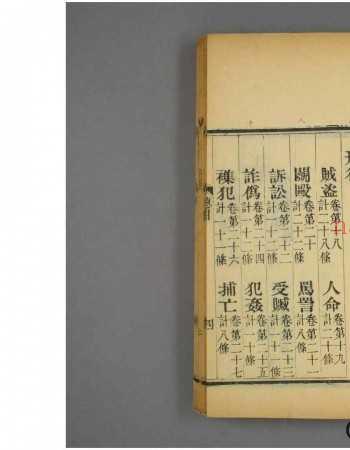 賊盜卷第十八計二十八條
人命卷第十九計二十條
鬪毆卷第二十計二十二條
罵詈卷第二十一計八條
訴訟卷第二十二計十二條
受贓卷第二十三計十一條
詐僞卷第二十四計十二條
犯姦卷第二十五計十條
襍犯卷第二十六計十一條
捕亡卷第二十七計八條
總目
四